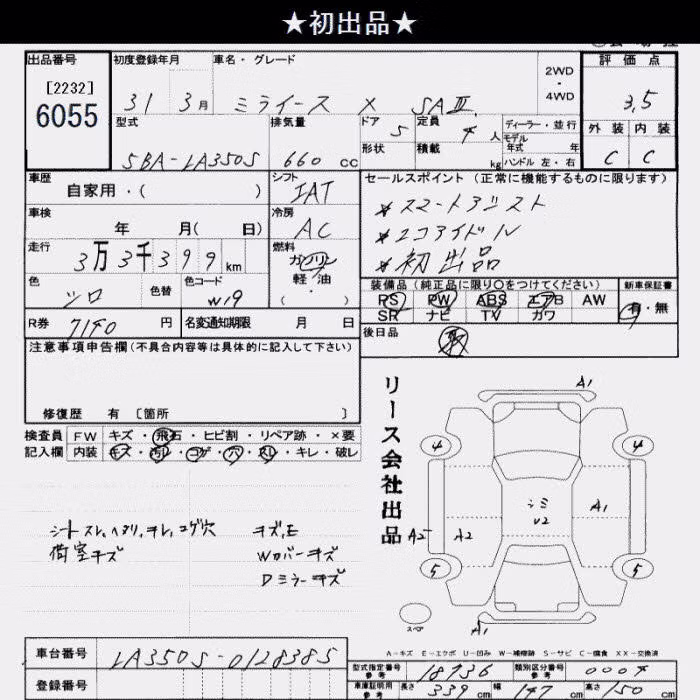 ★初出品★
出品番号 初度登録年月 車名・グレード 2WD・4WD 評価点
[2232]
6055
31 3月 ミライース X SAⅢ 3.5
型式 排気量 ドア 5 定員 4人 ディーラー・並行 外装 内装
モデル年式 年
形状 積載 kg ハンドル 左・右
5BA-LA350S 660cc C C
車歴 シフト セールスポイント(正常に機能するものに限ります)
自家用・( ) IAT
*スマートアシスト
車検 冷房
年 月( 日) AC
*エコアイドル
走行 燃料
3万3千399km ガソリン
*初出品
軽油
・( )
色 色替 色コード 装備品(純正品に限り○をつけてください) 新車保証書
シロ W19 PS PW ABS エアB AW 有・無
SR ナビ TV ガワ
R券 7140円 名変通知期限 月 日 後日品
注意事項申告欄(不具合内容等は具体的に記入して下さい) 取
修復歴 有 〔箇所 〕
検査員 FW キズ・飛石・ヒビ割・リペア跡・×要
記入欄 内装 キズ・汚レ・コゲ・穴・スレ・キレ・破レ
リース会社出品
A1
4 4
シミ
A1
U2
A2 A2
5 5
スペア
A1
シートスレ、ヘタリ、キレ、コゲ穴 キズ,E
荷室キズ Wカバーキズ
Dミラーキズ
A-キズ E-エクボ U-凹み W-補修跡 S-サビ C-腐食 XX-交換済
車台番号 LA350S-0128385
型式指定番号 参考 18736 類別区分番号 参考 0004
登録番号
車庫証明用 参考 長さ 339cm 幅 147cm 高さ 150cm